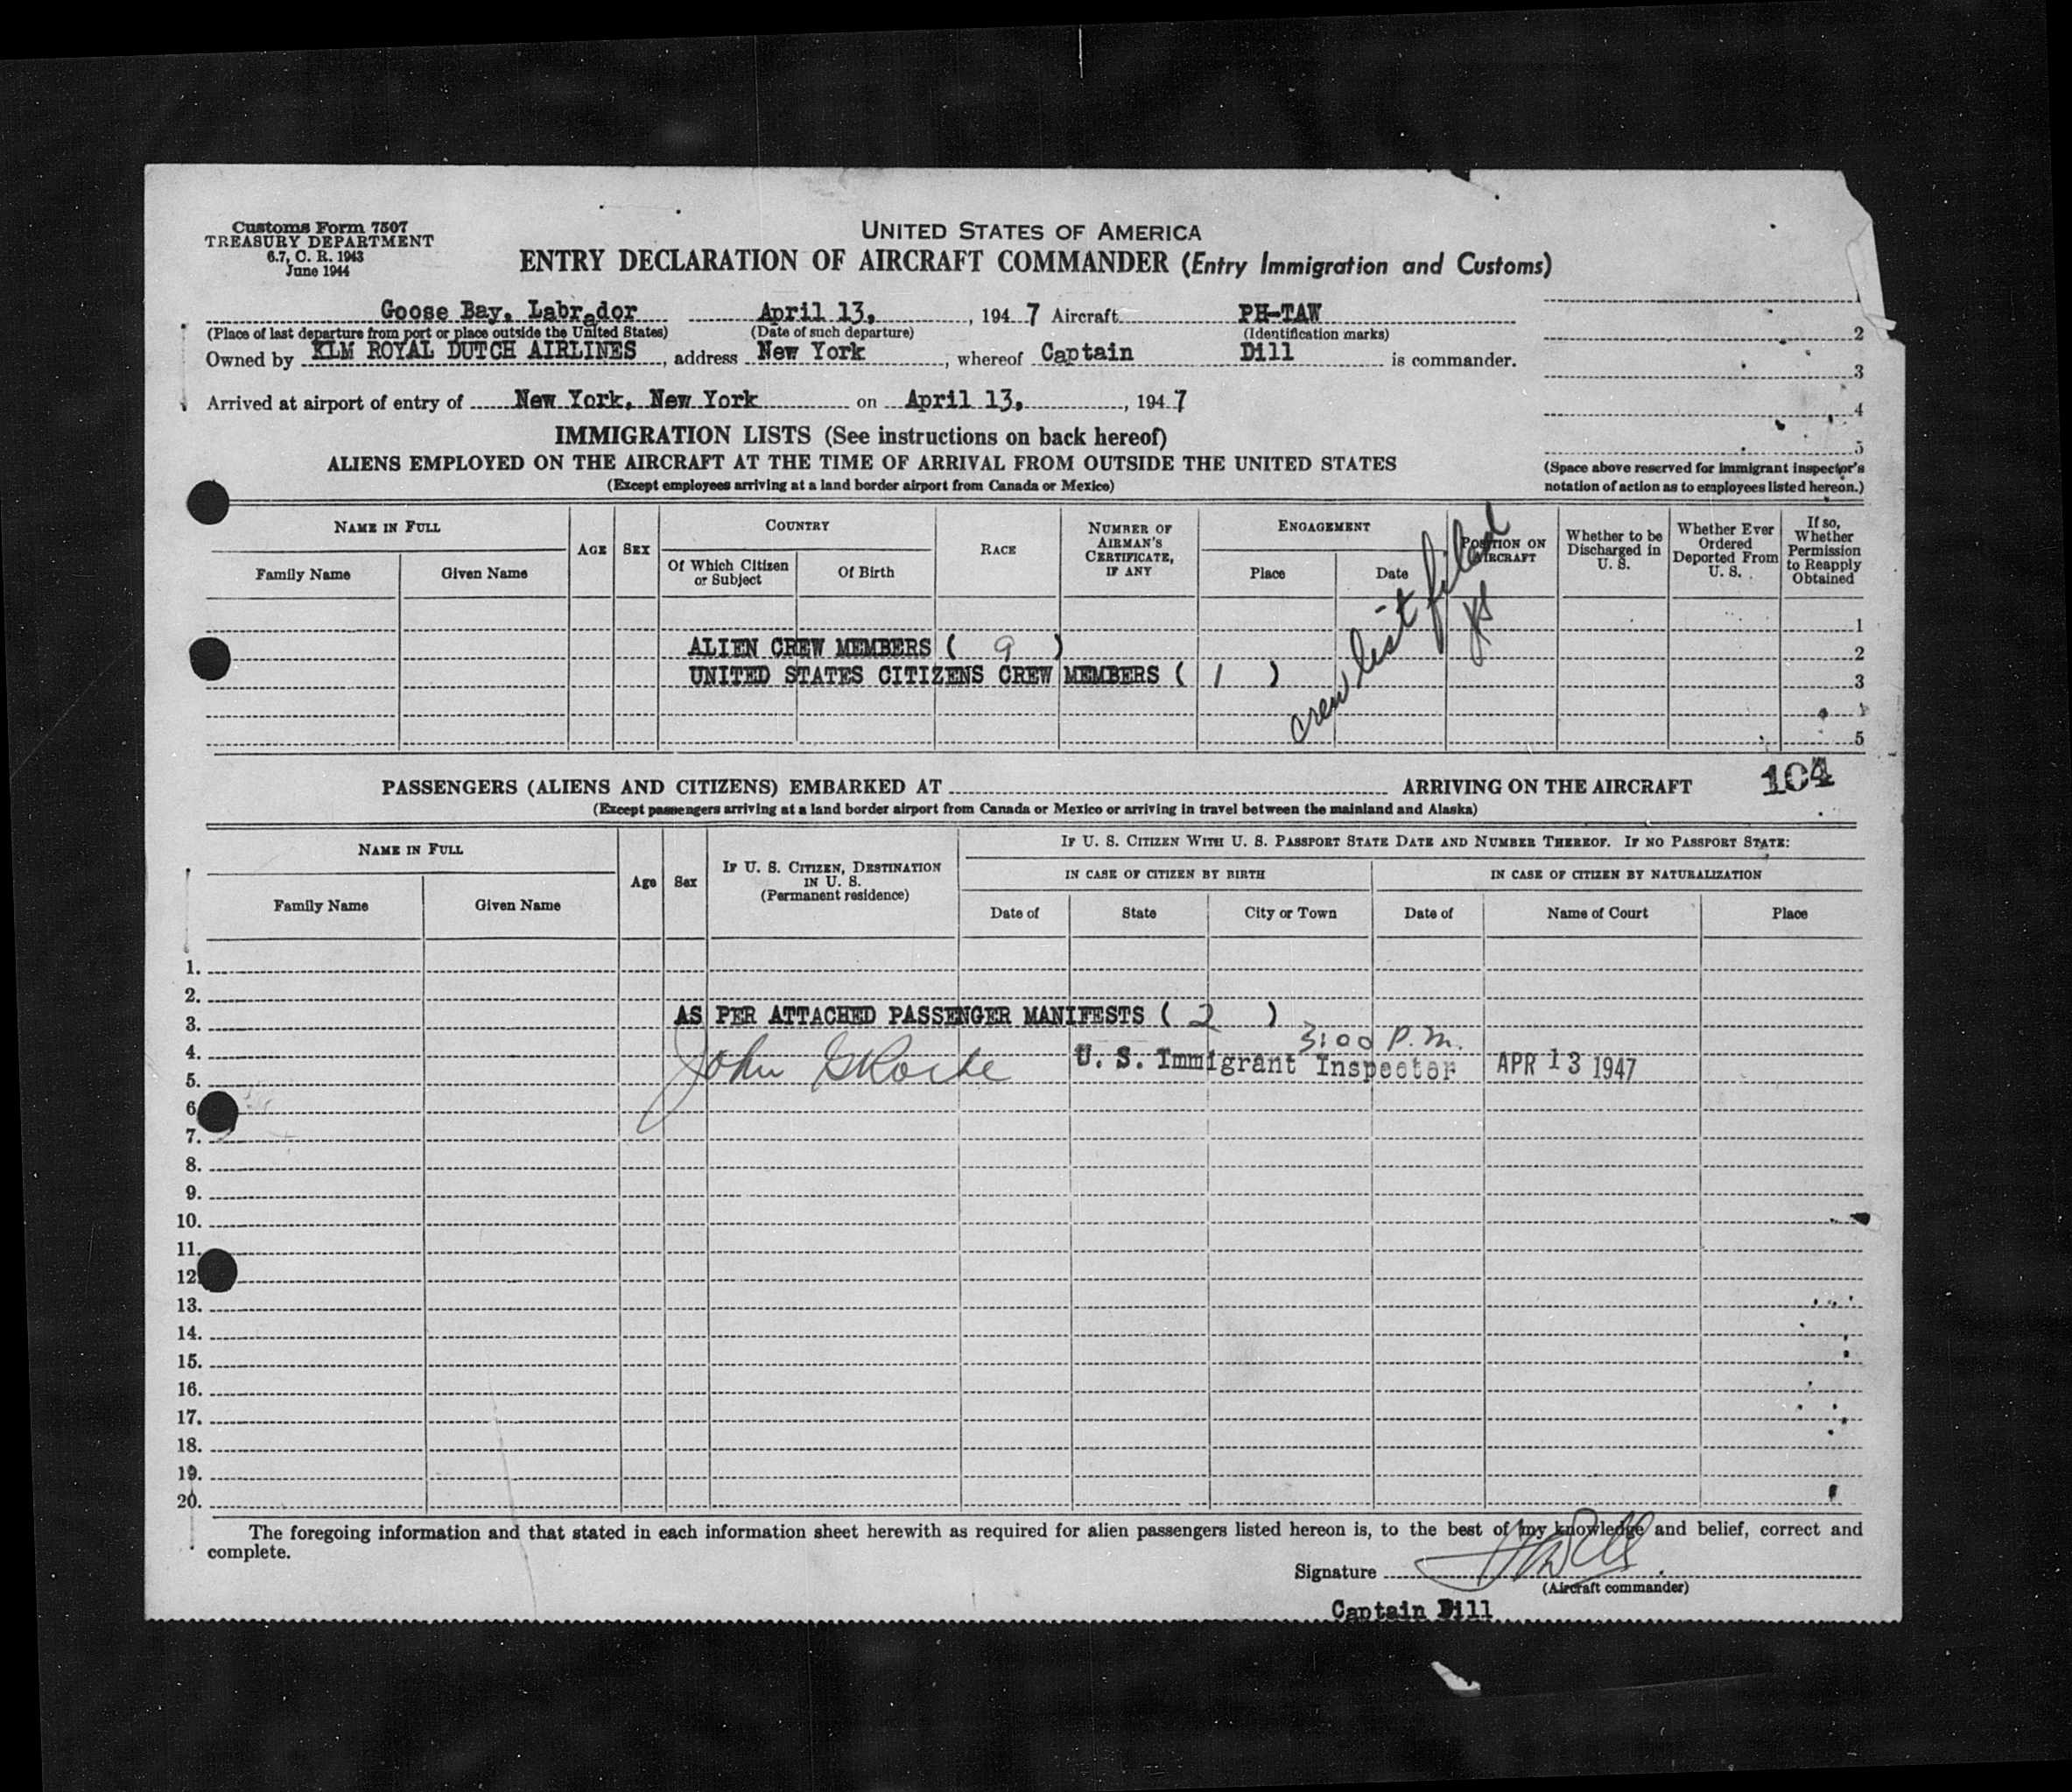 Customs Form 7507
TREASURY DEPARTMENT
6.7, C. R. 1943
June 1944
UNITED STATES OF AMERICA
ENTRY DECLARATION OF AIRCRAFT COMMANDER (Entry Immigration and Customs)
Goose Bay, Labrador April 13, , 194 7 Aircraft PH-TAW
(Place of last departure from port or place outside the United States) (Date of such departure) (Identification marks)
Owned by KLM ROYAL DUTCH AIRLINES , address New York , whereof Captain Dill is commander.
Arrived at airport of entry of New York, New York on April 13, , 194 7
1
2
3
4
5
(Space above reserved for immigrant inspector's
notation of action as to employees listed hereon.)
IMMIGRATION LISTS (See instructions on back hereof)
ALIENS EMPLOYED ON THE AIRCRAFT AT THE TIME OF ARRIVAL FROM OUTSIDE THE UNITED STATES
(Except employees arriving at a land border airport from Canada or Mexico)
NAME IN FULL
Family Name Given Name
AGE
SEX
COUNTRY
Of Which Citizen
or Subject
Of Birth
RACE
NUMBER OF
AIRMAN'S
CERTIFICATE,
IF ANY
ENGAGEMENT
Place Date
POSITION ON
AIRCRAFT
Whether to be
Discharged in
U. S.
Whether Ever
Ordered
Deported From
U. S.
If so,
Whether
Permission
to Reapply
Obtained
1
ALIEN CREW MEMBERS ( 9 ) 2
UNITED STATES CITIZENS CREW MEMBERS ( 1 ) 3
5
crew list filed
PASSENGERS (ALIENS AND CITIZENS) EMBARKED AT ARRIVING ON THE AIRCRAFT 104
(Except passengers arriving at a land border airport from Canada or Mexico or arriving in travel between the mainland and Alaska)
NAME IN FULL
Family Name Given Name
Age
Sex
IF U. S. CITIZEN, DESTINATION
IN U. S.
(Permanent residence)
IF U. S. CITIZEN WITH U. S. PASSPORT STATE DATE AND NUMBER THEREOF. IF NO PASSPORT STATE:
IN CASE OF CITIZEN BY BIRTH IN CASE OF CITIZEN BY NATURALIZATION
Date of State City or Town Date of Name of Court Place
1.
2.
3. AS PER ATTACHED PASSENGER MANIFESTS ( 2 )
4. 3:00 P.M.
5. John U. S. Immigrant Inspector APR 13 1947
6
7.
8.
9.
10.
11.
12
13.
14.
15.
16.
17.
18.
19.
20.
The foregoing information and that stated in each information sheet herewith as required for alien passengers listed hereon is, to the best of my knowledge and belief, correct and
complete.
Signature
(Aircraft commander)
Captain Dill